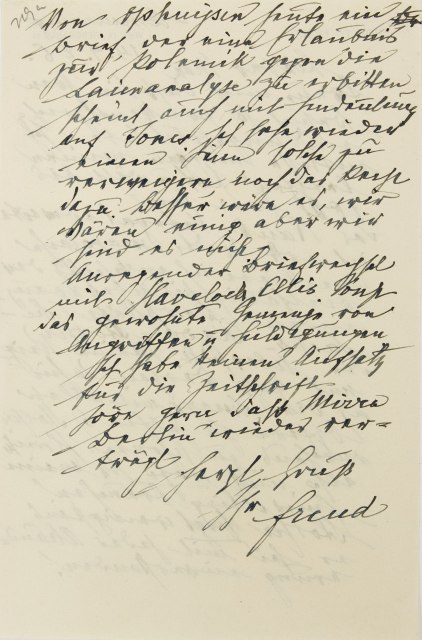 292
Von Ophuijsen heute ein
Brief, der eine Erlaubnis
zur Polemik gegen die
Laienanalyse zu erbitten
scheint auch mit Hindeutung
auf Jones. Ich sehe weder
einen Sinn solche zu
verweigern noch das Recht
dazu. Besser wäre es, wir
wären einig aber wir
sind es nicht.
Anregender Briefwechsel
mit Havelock Ellis sonst
das gewohnte Gemenge von
Angriffen u Huldigungen
Ich habe keinen Aufsatz
für die Zeitschrift
höre gern daß Mirra
Berlin wieder ver-
trägt
herzl Gruß
Ihr Freud